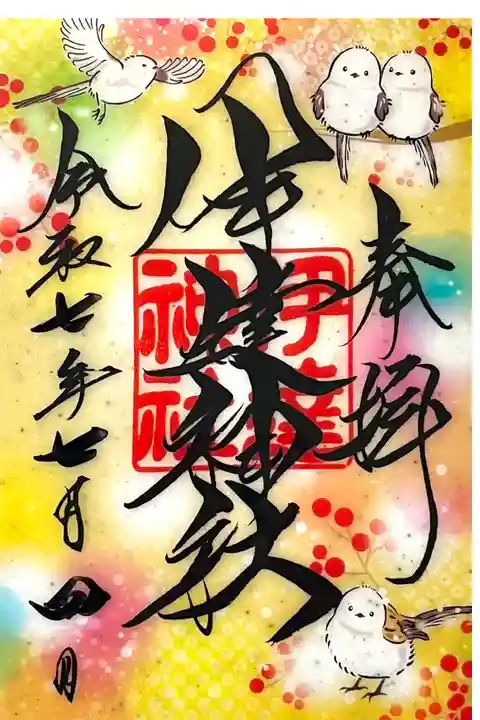 奉拝
伊達神社
伊達
神社
令和七年七月四日